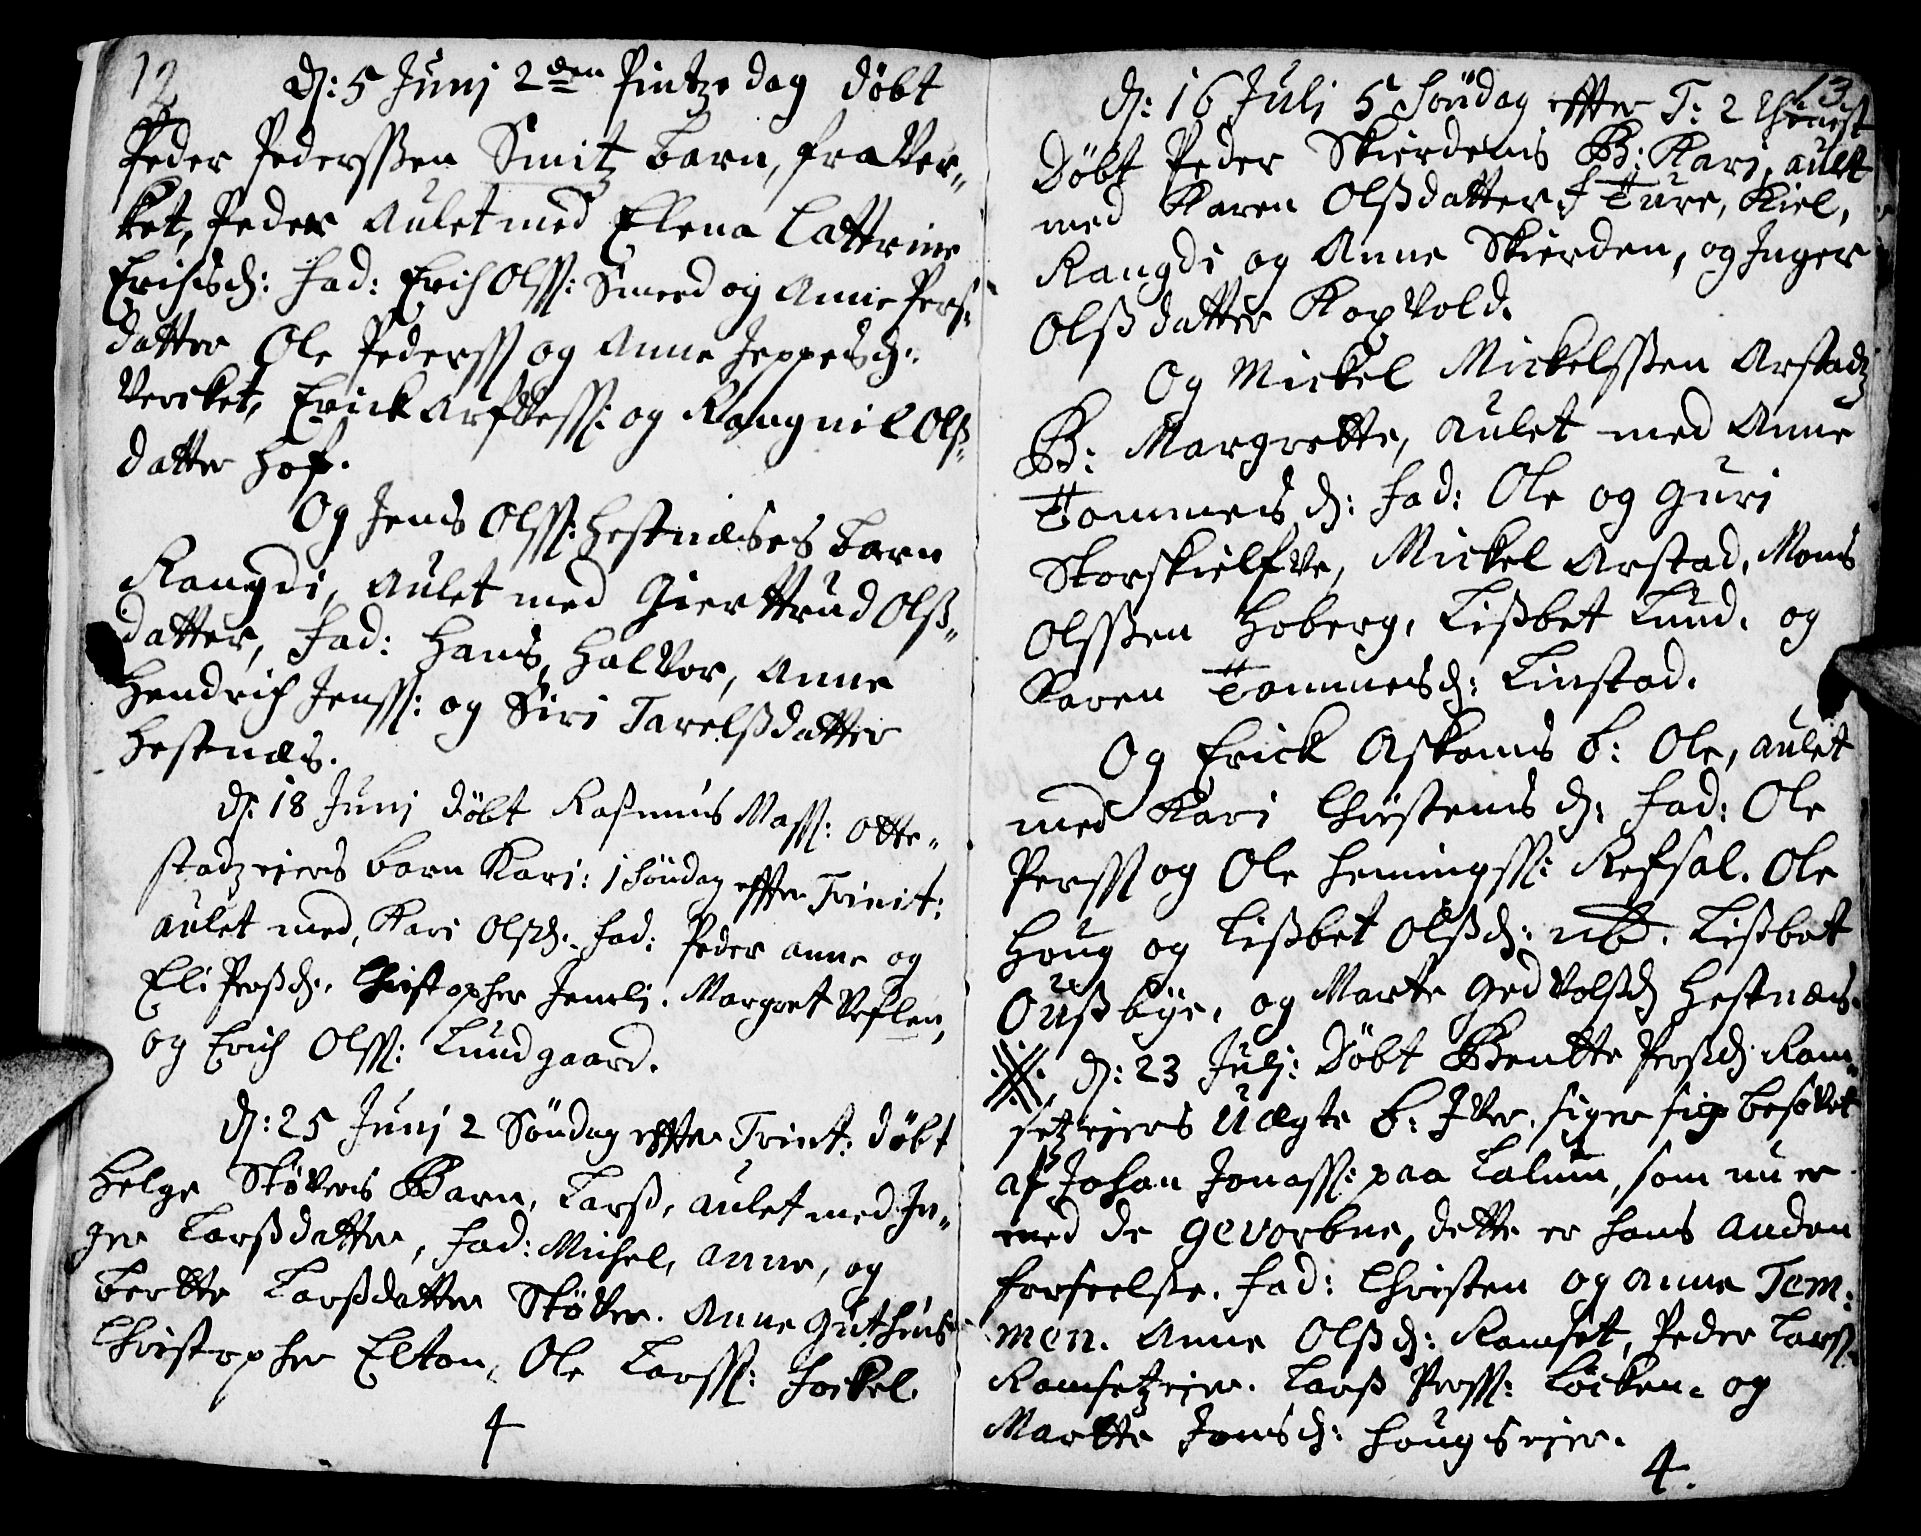 12
D: 5 Junj 2den Pintze dag döbt
Peder Pederssen Smitz barn, fra Ver„
ket, Peder aulet med Ellena Cattrine
Erichsd: fad: Erich Olss: Smed og Anne Pers„
datter Ole Pederss og Anne Jeppesd:
Vercket, Erick Arfvess: og Rangnil Ols„
datter Hof.
Og Jens Olss: Hestnæses barn
Rangdi, aulet med Gierttrud Olß„
datter, fad: Hans, Halvor, Anne
Hendrich Jenss: og Siri Tarelßdatter
Hestnæs.
D: 18 Junj döbt Rasmus Mass: Otte„
stadz eiers barn Kari: 1 Söndag effter Trinit:
aulet med, Kari Olsd: fad: Peder anne og
Eli Persd:, Christopher Jemli. Margret Veflen,
og Erich Olss: Lundgaard.
D: 25 Junj 2 Söndag effter Trinit: döbt
Helge Støvers Barn, Larß, aulet med In„
ger Larßdatter, fad: Michel, Anne, og
Bertte Larßdatter Støver. Anne Guthus
Christopher Elton, Ole Larss: Jockel.
4
13
D: 16 Juli 5 Söndag effter T: 2
Döbt Peder Skierdens B: Kari, aulet
med Karen Olßdatter, f Ture, Kiel,
Rangdi og Anne Skierden, og Inger
Olßdatter Kopvold.
Og Mickel Mickelssen Arstadz
B: Margrette, aulet med Anne
Tommesd: fad: Ole og Guri
Storskielfve, Mickel Arstad, Mons
Olssen Hoberg, Lißbet Lund, og
Karen Tommesd: Linstad.
Og Erick Askoms b: Ole, aulet
med Kari Christensd: fad: Ole
Perss og Ole Hemingss: Refsal. Ole
Houg og Lißbet Olßd: ib. Lißbet
Oußbye, og Marte Gedvolßd Hestnæs.
D: 23 Julj: Döbt Bentte Perßd: Ram„
setz eiers uægte b: Iver, siger sig besovet
af Johan Jonass: paa Lalum, som nu er
med de gevorbne, dette er hans anden
forseelse. fad: Christen og Anne Tom:
men. Anne Olßd: Ramset, Peder Larss
Ramsetz eier. Larß Perss: Löcken. og
Martte Jonsd: Hougs eier.
4.